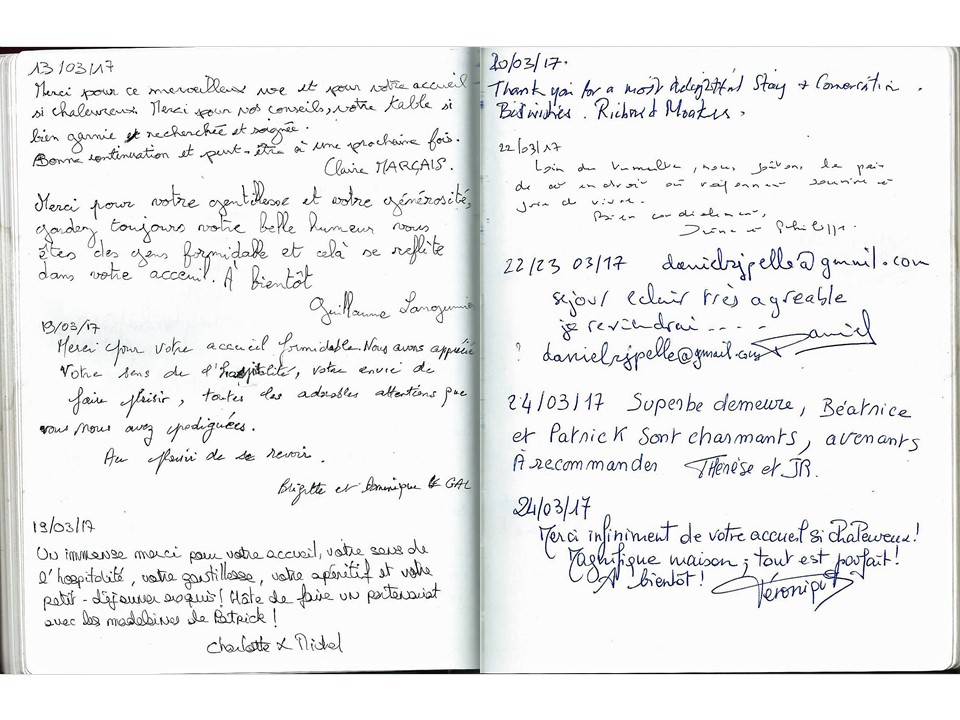 13/03/17
Merci pour ce merveilleux vue et pour votre accueil
si chaleureux. Merci pour vos conseils, votre table si
bien garnie et recherchée et soignée.
Bonne continuation et peut-être à une prochaine fois.
Claire MARÇAIS.
Merci pour votre gentillesse et votre générosité,
gardez toujours votre belle humeur vous
êtes des gens formidable et celà se reflète
dans votre acceuil. À bientôt
Guillaume
19/03/17
Merci pour votre accueil formidable. Nous avons apprécié
Votre sens de l'hospitalité, votre envie de
faire plaisir, toutes les adorables attentions que
vous nous avez prodiguées.
Au plaisir de se revoir.
Brigitte et Dominique LE GAL
19/03/17
Un immense merci pour votre accueil, votre sens de
l'hospitalité, votre gentillesse, votre apéritif et votre
petit-déjeuner exquis! Hâte de faire un partenariat
avec les madeleines de Patrick!
Charlotte & Michel
20/03/17.
Thank you for a most delightful Stay +
Best wishes. Richard
22/03/17
Loin du tumulte, nous goûtons la paix
de cet endroit où rayonnent sourire et
joie de vivre.
Bien cordialement,
et Philippe.
22/23 03/17 danielrjpelle@gmail.com
sejour eclair très agreable
je reviendrai ..... Daniel
? danielrjpelle@gmail.com
24/03/17 Superbe demeure, Béatrice
et Patrick sont charmants, avenants
À recommander Thérèse et JR.
24/03/17
Merci infiniment de votre accueil si chaleureux!
Magnifique maison; tout est parfait!
A bientôt! Véronique